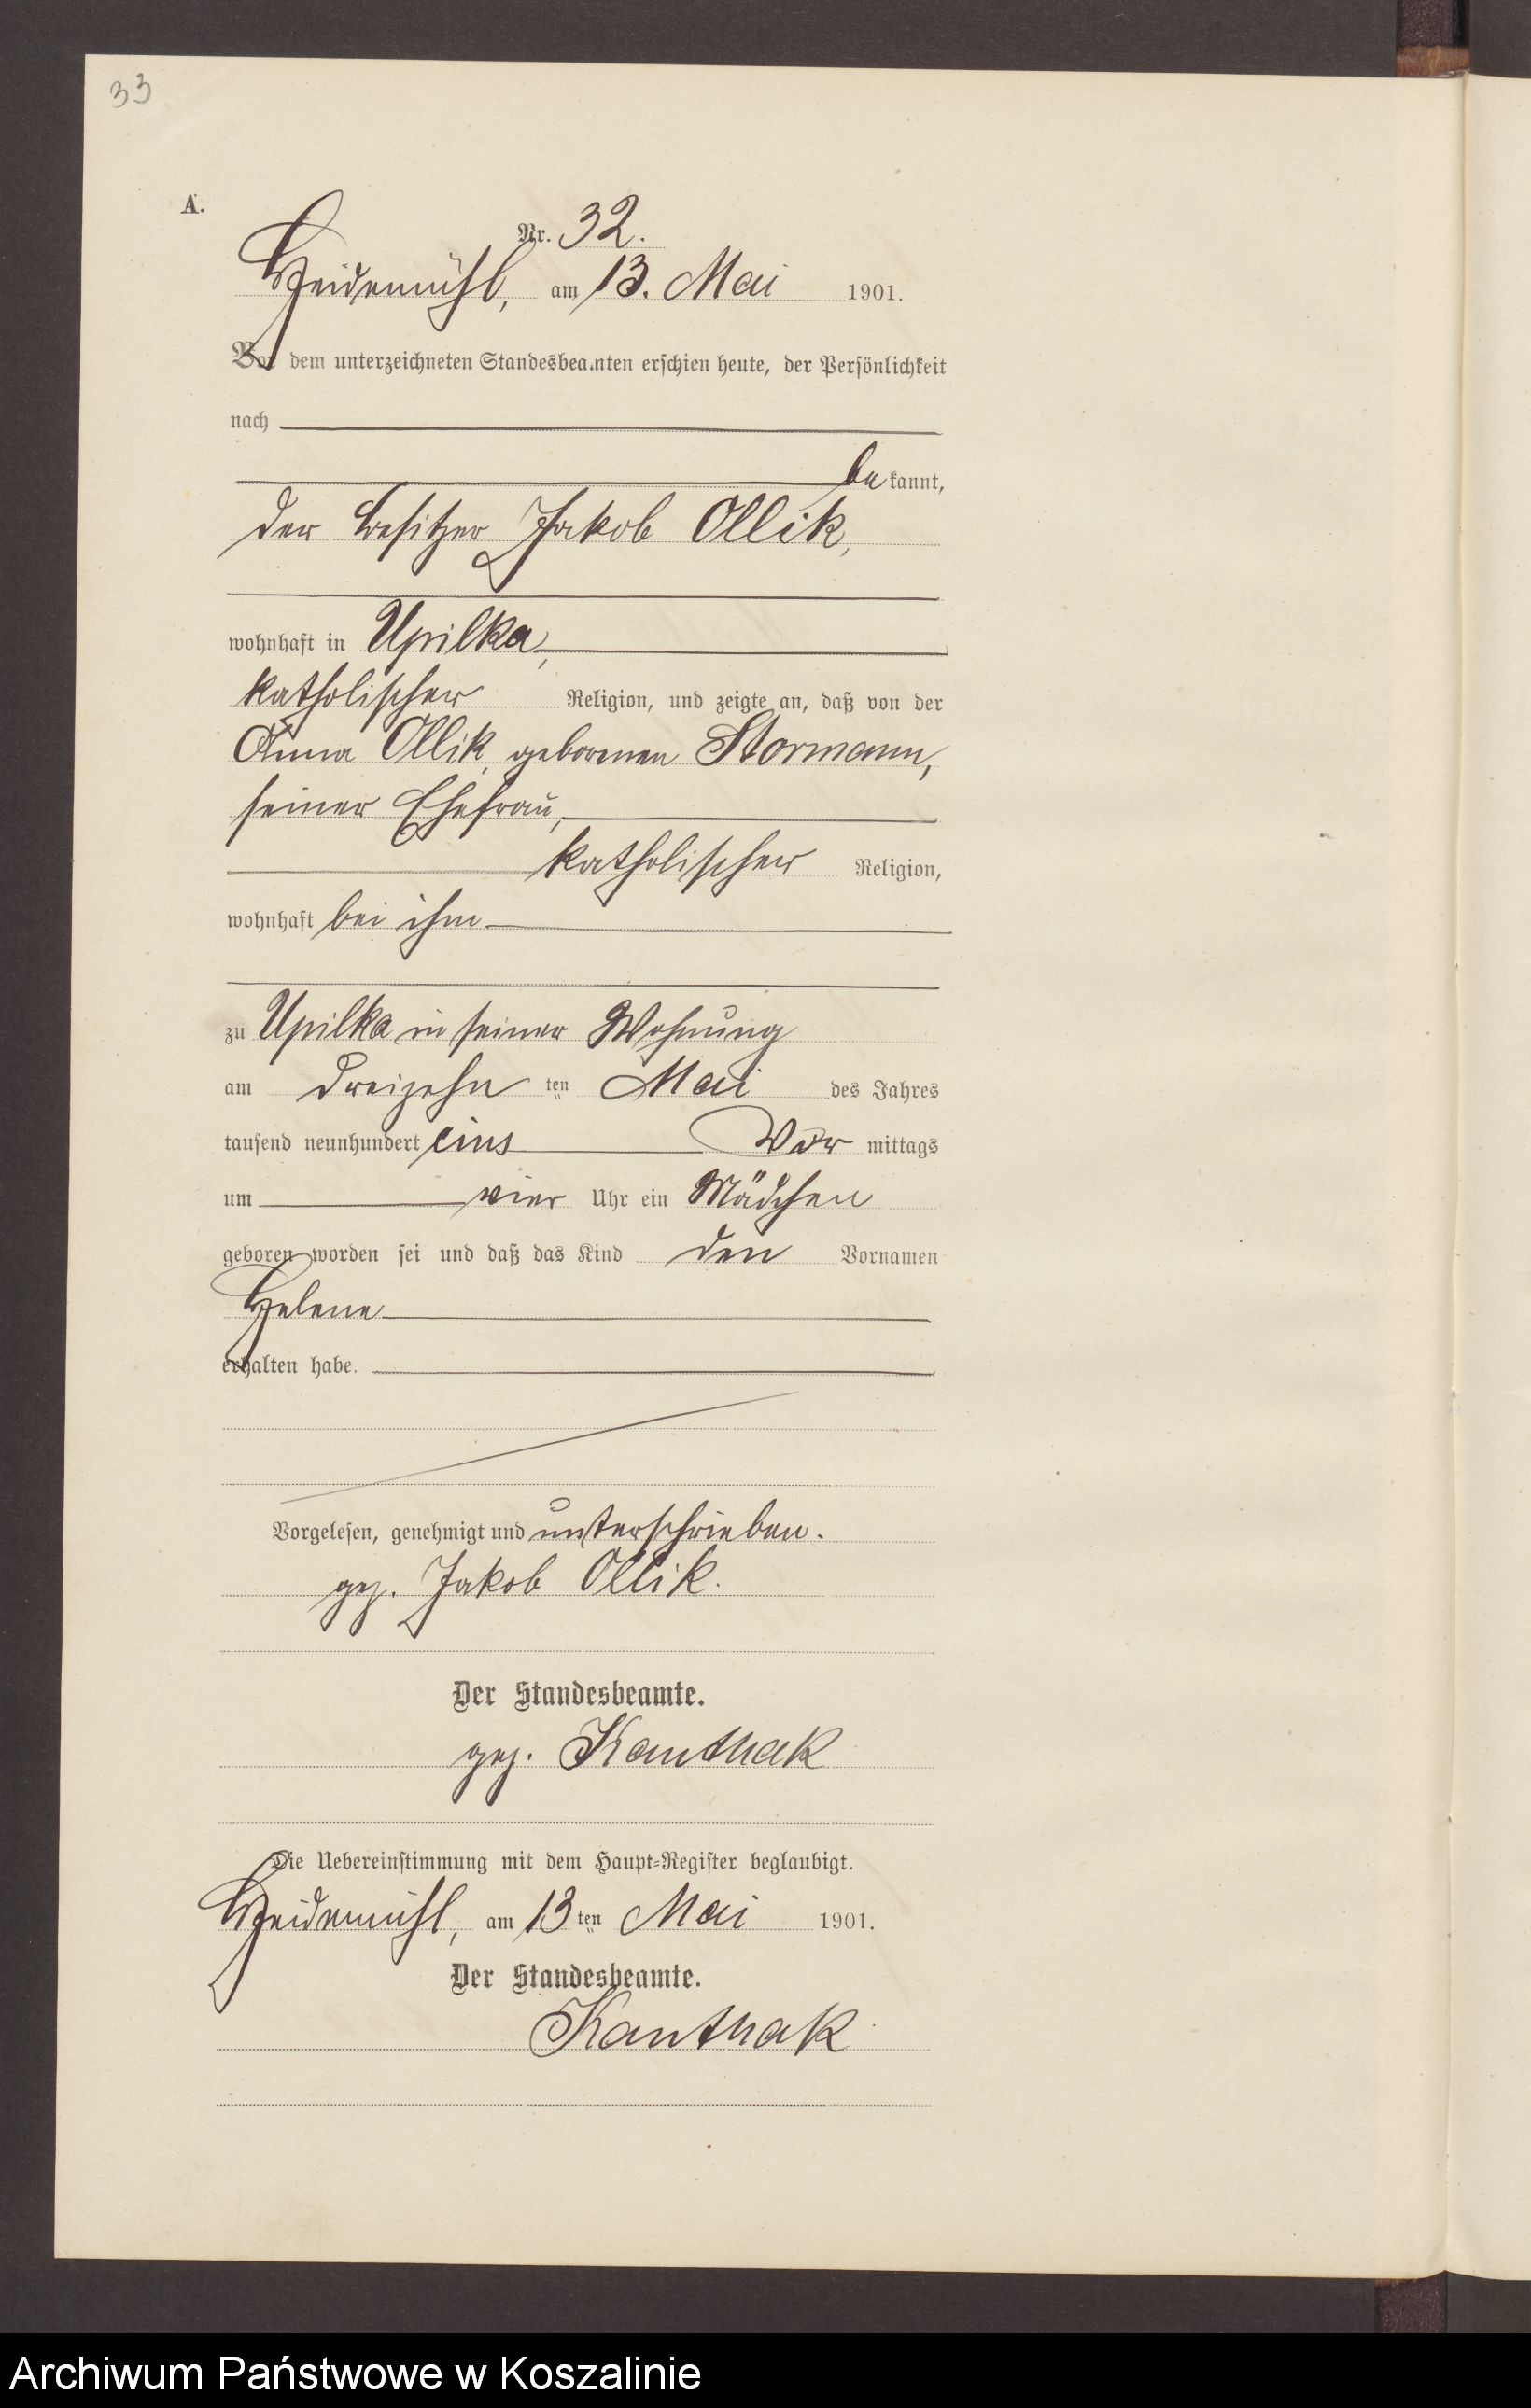 33
A.
Nr. 32.
Heidemühl, am 13. Mai 1901.
Vor dem unterzeichneten Standesbeamten erschien heute, der Persönlichkeit
nach
bekannt,
der Besitzer Jakob Ollik,
wohnhaft in Upilka,
katholischer Religion, und zeigte an, daß von der
Anna Ollik, geborenen Stormann,
seiner Ehefrau,
katholischer Religion,
wohnhaft bei ihm
zu Upilka in seiner Wohnung
am dreizehn ten Mai des Jahres
tausend neunhundert eins Vor mittags
um vier Uhr ein Mädchen
geboren worden sei und daß das Kind den Vornamen
Helene
erhalten habe.
Vorgelesen, genehmigt und unterschrieben.
gez. Jakob Ollik.
Der Standesbeamte.
gez. Kanthak
Die Uebereinstimmung mit dem Haupt=Register beglaubigt.
Heidemühl, am 13 ten Mai 1901.
Der Standesbeamte.
Kanthak
Archiwum Państwowe w Koszalinie